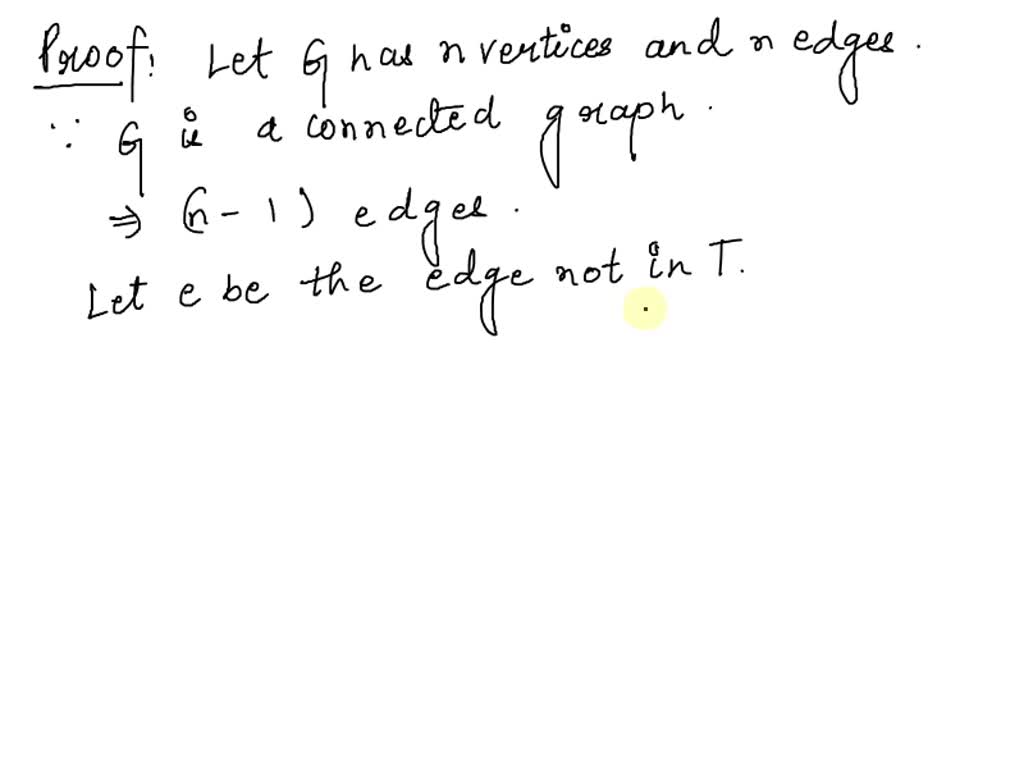 Proof: Let G has n vertices and n edges.
∵ G is a connected graph.
⇒ (n-1) edges.
Let e be the edge not in T.